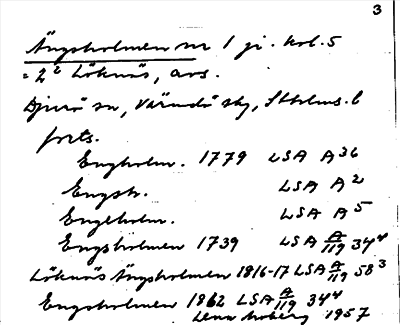 3
Ängsholmen nr 1 ji. kol. 5
= 2² Löknäs, avs.
Djurö sn, Värmdö skg, Sthlms. l
forts.
Engholm. 1779 LSA A 36
Engsh. LSA A 2
Engelholm. LSA A 5
Engsholmen 1739 LSA A/119 34⁴
Löknäs Ängsholmen 1816-17 LSA A/119 58³
Engsholmen 1862 LSA A/119 34⁴
1957